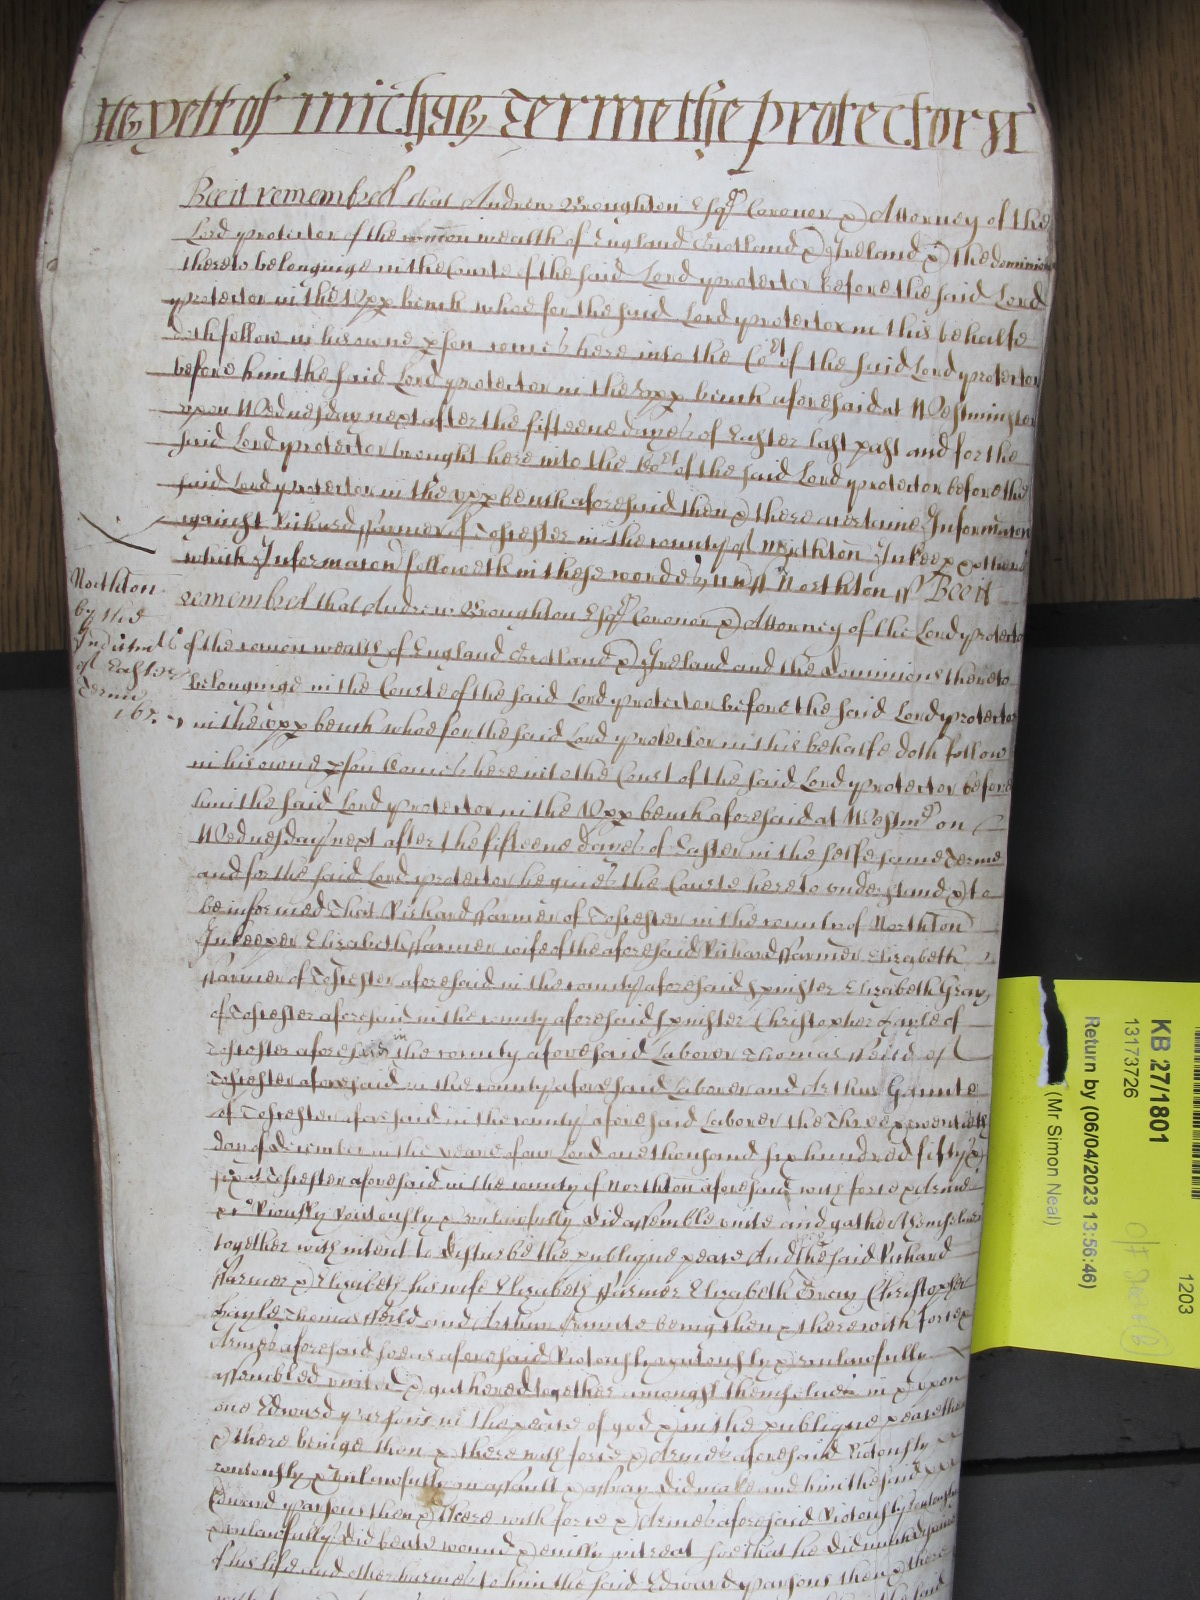 yett of Mich'as Terme the protector st
Bee it remembred that Andrew Broughton Esqr Coronor & Attorney of the
Lord protector of the comon wealth of England Scotland & Ireland & the dominions
thereto belonginge in the Courte of the said Lord protector before the said Lord
protector in the upp bench whoe for the said Lord protector in this behalfe
doth follow in his owne pson comes here into the Cort of the said Lord protector
before him the said Lord protector in the upp bench aforesaid at Westminster
upon Wednesday next after the fifteene dayes of Easter last past and for the
said Lord protector brought here into the Cort of the said Lord protector before the
said Lord protector in the upp bench aforesaid then & there a certaine Informacon
against Richard ffarmer of Tosester in the county of Northton Inkeep & others
which Informacon followeth in these wordes ss Northton ss Bee it
Northton
by the
Indictmts
of Easter
Terme
165
remembred that Andrew Broughton Esqr Coronor & Attorney of the Lord protector
of the comon wealth of England Scotland & Ireland and the Dominions thereto
belonginge in the Courte of the said Lord protector before the said Lord protector
in the upp bench whoe for the said Lord protector in this behalfe doth follow
in his owne pson Comes here into the Court of the said Lord protector before
him the said Lord protector in the upp bench aforesaid at Westmr on
Wednesday next after the fifteene dayes of Easter in the selfe same Terme
and for the said Lord protector he gives the Courte here to understand & to
be informed That Richard ffarmer of Tosester in the county of Northton
Inkeeper Elizabeth ffarmer wife of the aforesaid Richard ffarmer Elizabeth
ffarmer of Tosester aforesaid in the county aforesaid spinster Elizabeth Gray
of Tosester aforesaid in the county aforesaid spinster Christopher Gayle of
Tosester aforesaid in the county aforesaid Laborer Thomas ffeild of
Tosester aforesaid in the county aforesaid Laborer and Arthur Gannte
of Tosester aforesaid in the county aforesaid Laborer the Three & twentieth
day of December in the yeare of our Lord one thousand six hundred fifty &
six at Tosester aforesaid in the county of Northton aforesaid with force & Armes
&c Riotously Routously & unlawfully did assemble unite and gather themselves
together with intent to disturbe the publique peace And the said Richard
ffarmer & Elizabeth his wife Elizabeth ffarmer Elizabeth Gray Christopher
Gayle Thomas ffeild and Arthur Gannte being then & there with force &
Armes aforesaid soe as aforesaid Riotously routously & unlawfully
assembled united & gathered together amongst themselves in & upon
one Edward parsons in the peace of god & in the publique peace then
& there beinge then & there with force & Armes aforesaid Riotously
routously & Unlawfully an assault & affray did make and him the said
Edward parsons then & there with force & Armes aforesaid Riotously routously
& unlawfully did beate wound & evilly intreat soe that he did much dispaire
of his life and other harmes to him the said Edward parsons then & there
KB 27/1801
13173726
Return by (06/04/2023 13:56:46)
(Mr Simon Neal)
1203